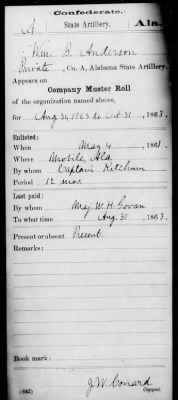 Confederate.
A State Artillery. Ala.
Wm B. Anderson
Private, Co. A, Alabama State Artillery.
Appears on
Company Muster Roll
of the organization named above,
for Aug 31, 1863 to Oct. 31, 1863.
Enlisted:
When May 4, 1861.
Where Mobile, Ala
By whom Captain Ketchum
Period 12 mos
Last paid:
By whom Maj. W. H. Govan
To what time Aug. 31, 1863.
Present or absent Present
Remarks:
Book mark:
J. W. Conard
(642) Copyist.